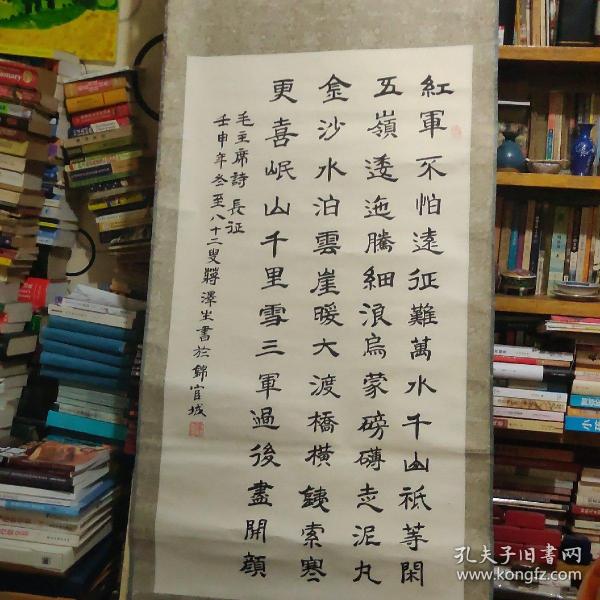 紅軍不怕遠征難萬水千山祇等閑
五嶺逶迤騰細浪烏蒙磅礴走泥丸
金沙水泊雲崖暖大渡橋橫鐵索寒
更喜岷山千里雪三軍過後盡開顔
毛主席詩長征
壬申年冬至八十二叟蔣澤生書於錦官城
孔夫子旧书网
www.kongfz.com